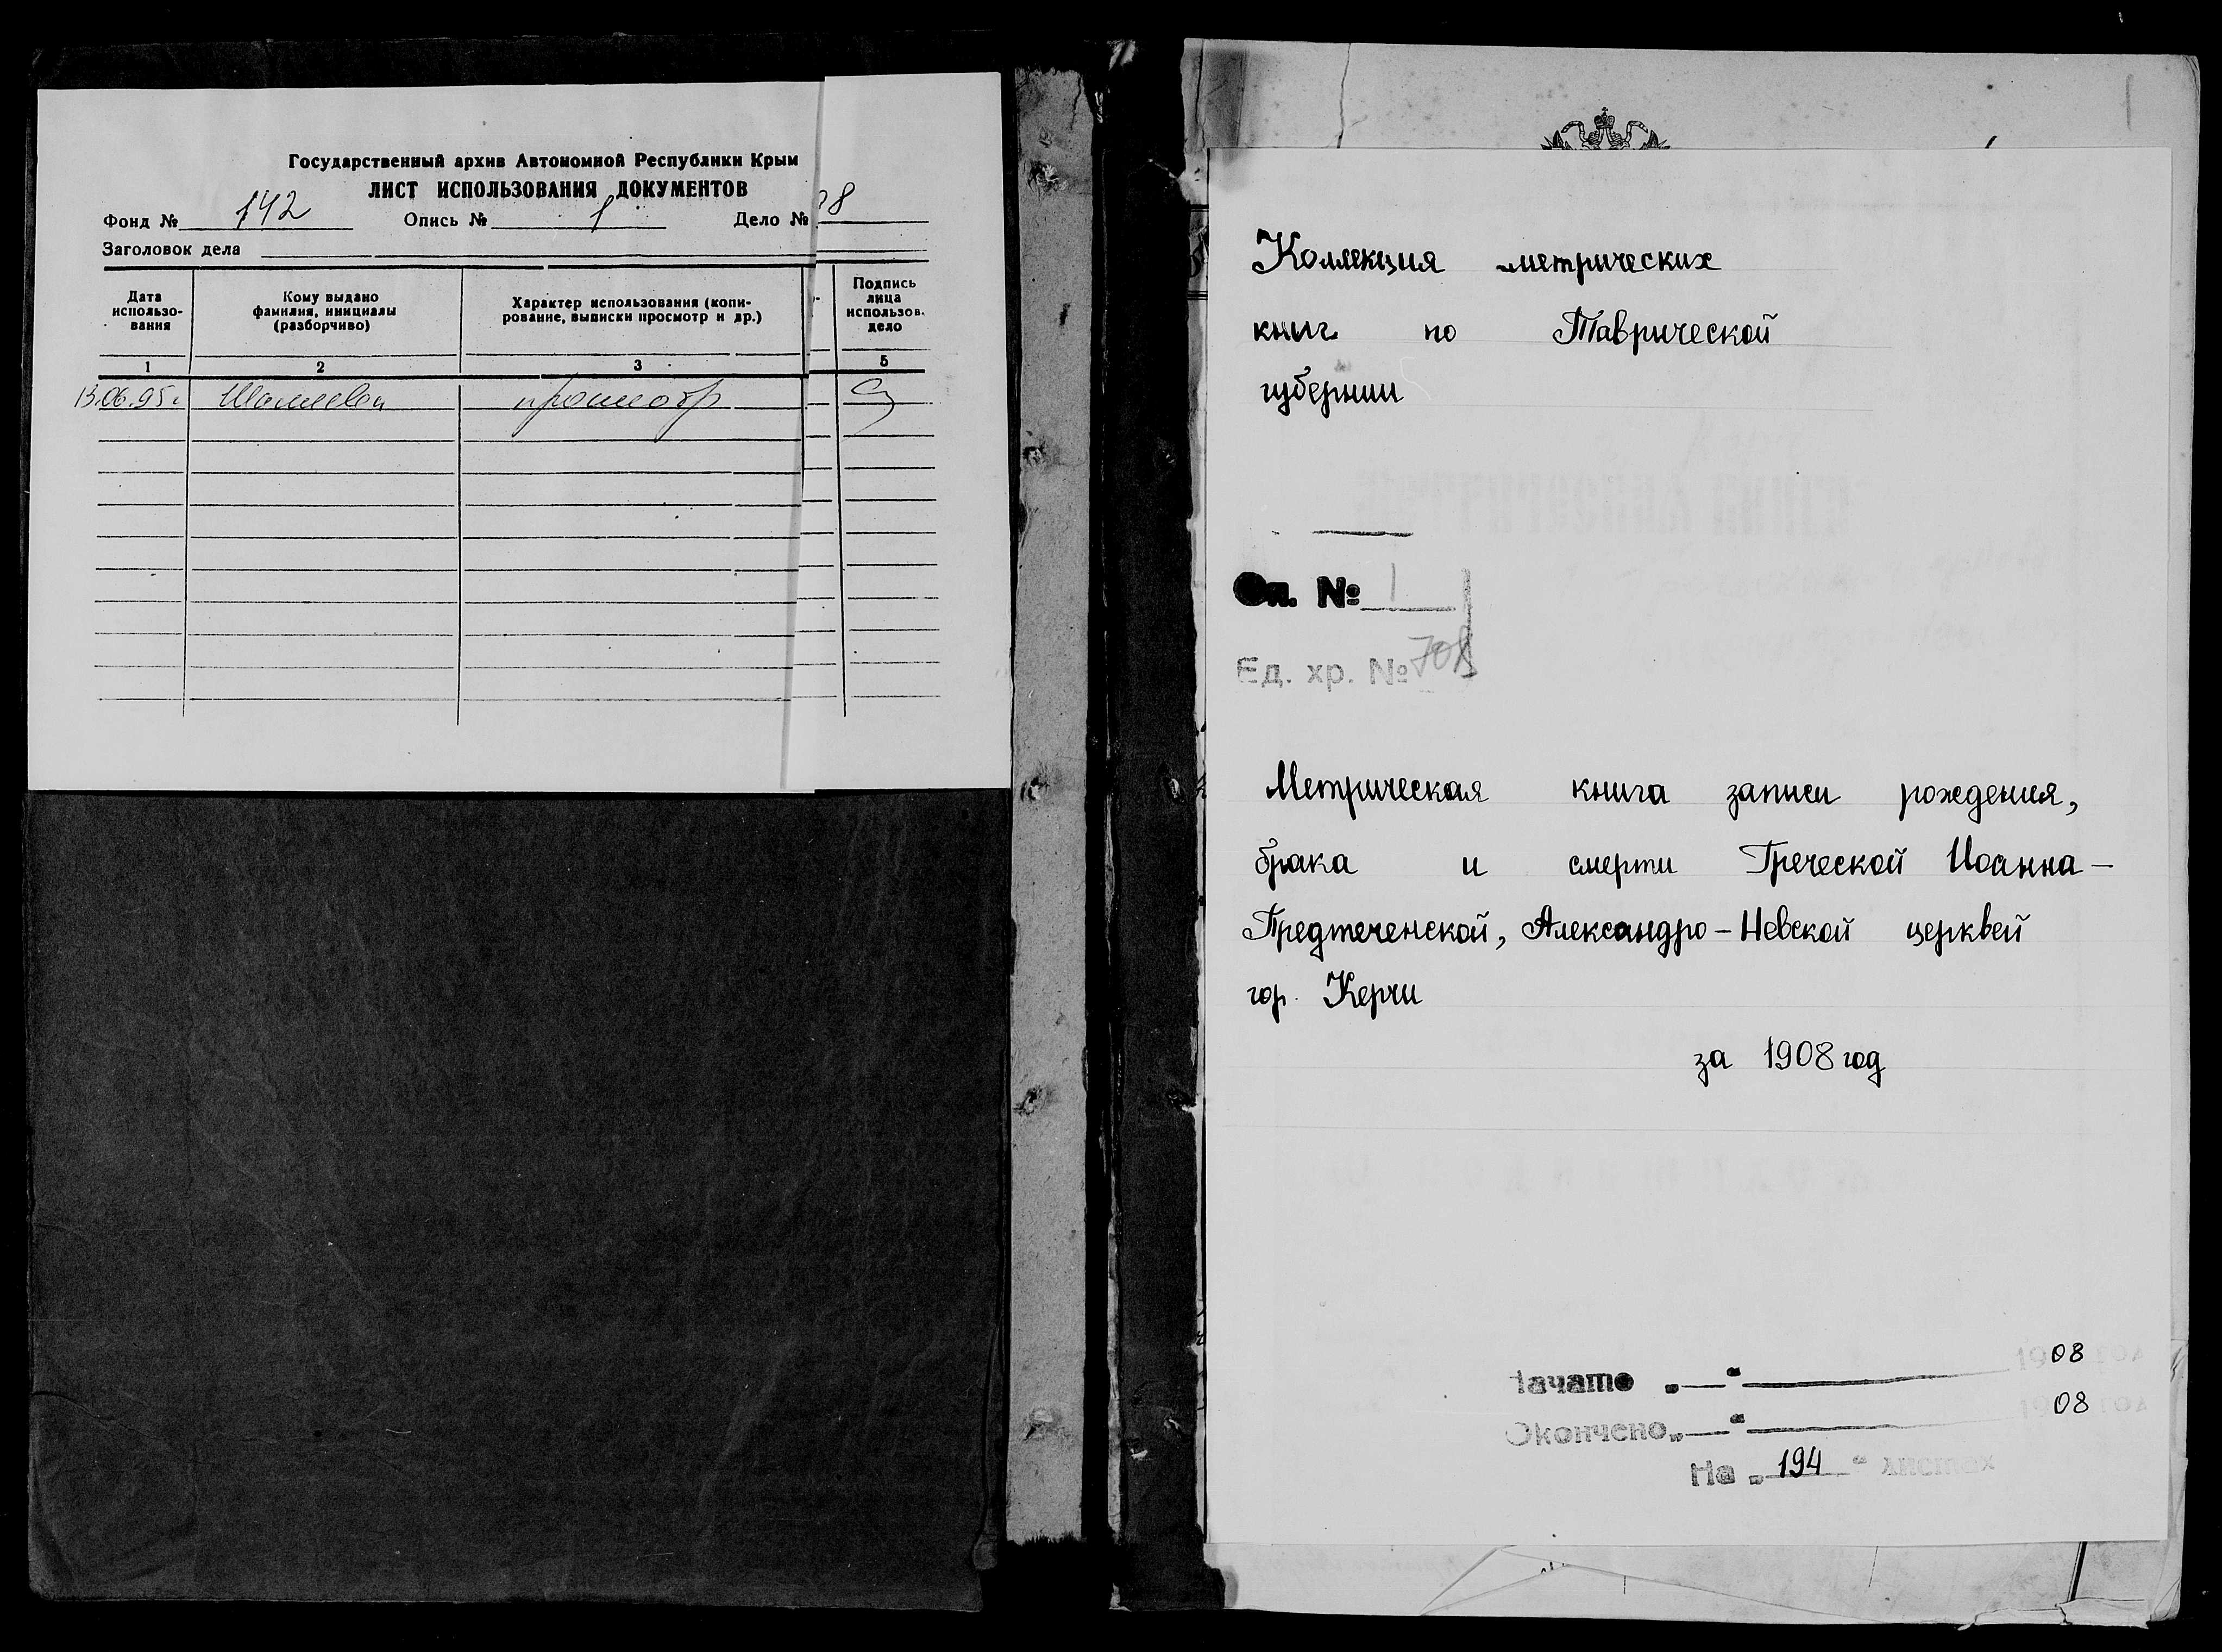 Государственный архив Автономной Республики Крым
ЛИСТ ИСПОЛЬЗОВАНИЯ ДОКУМЕНТОВ
Фонд № 142 Опись № 1 Дело № 8
Заголовок дела
Дата использо-вания
Кому выдано фамилия, инициалы (разборчиво)
Характер использования (копи-рование, выписки просмотр и др.)
Подпись лица использов. дело
1 2 3 5
13.06.95г. просмотр
Коллекция метрических
книг по Таврической
губернии
Оп. № 1
Ед. хр. № 708
Метрическая книга записи рождения,
брака и смерти Греческой Иоанна-
Предтеченской, Александро-Невской церквей
гор. Керчи
за 1908 год
Начато „—“ 1908 год
Окончено „—“ 1908 год
На „194“ листах